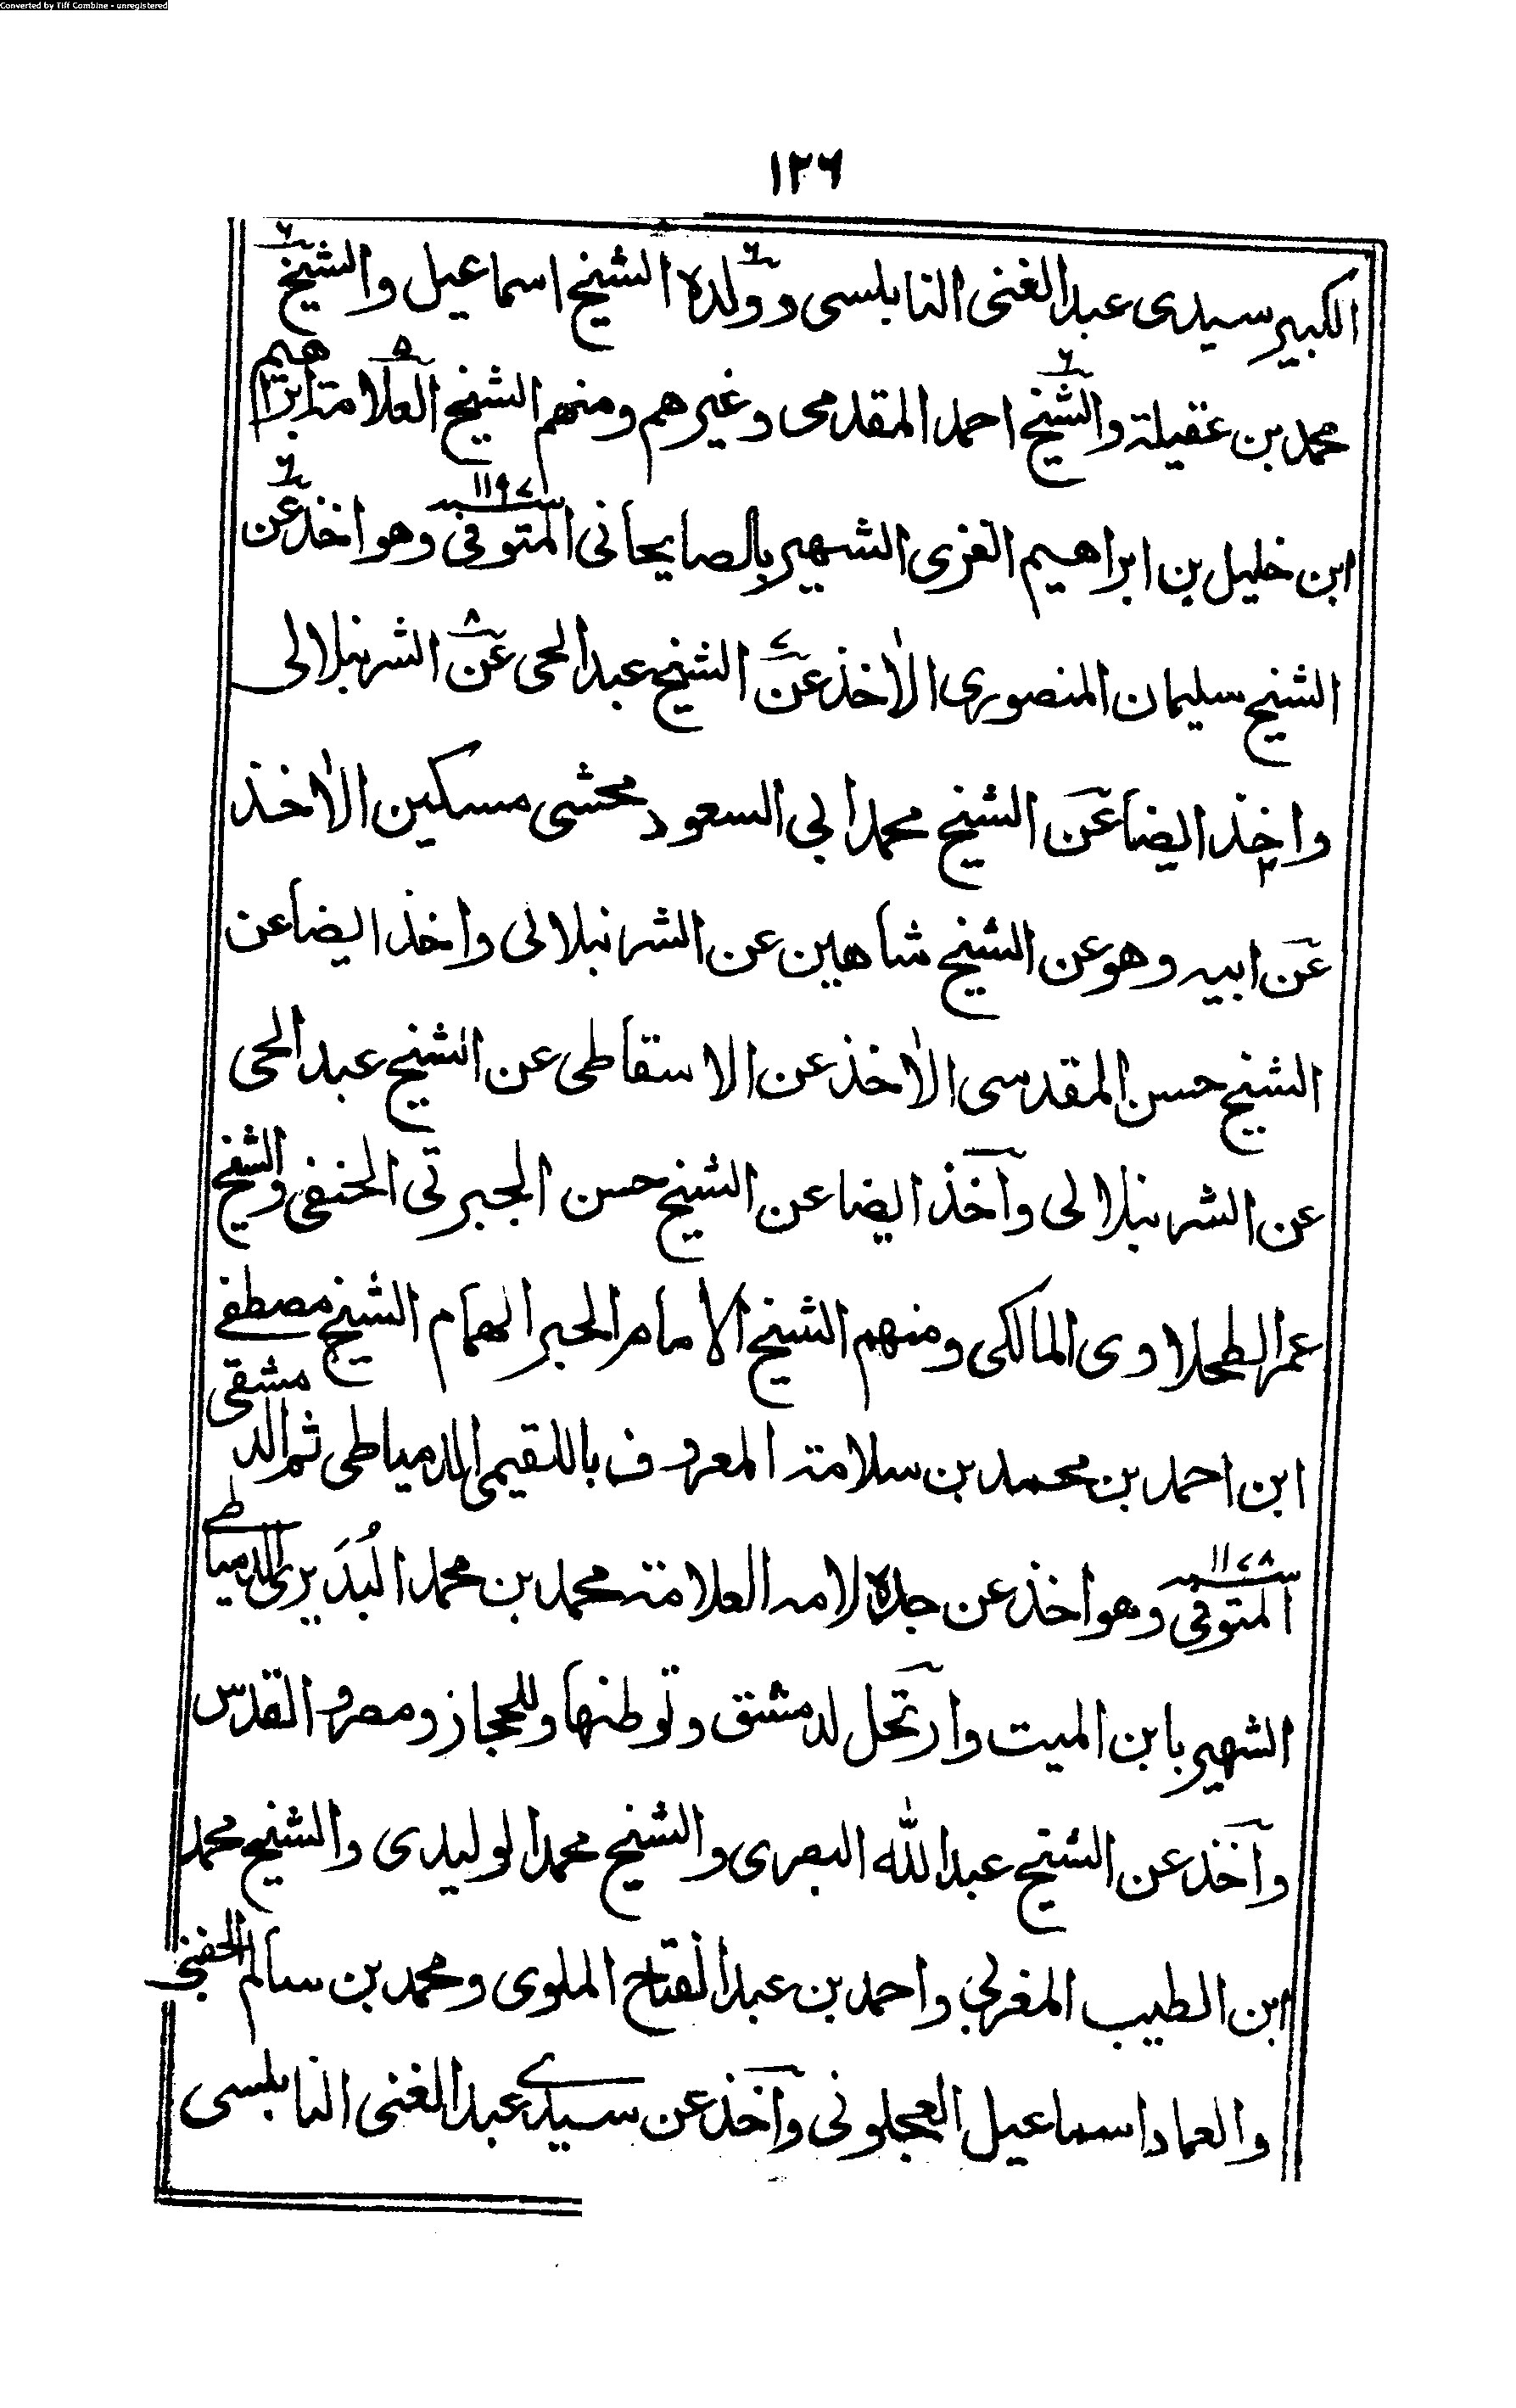 Converted by Tiff Combine - unregistered
١٢٦
الكبير سيدى عبد الغنى النابلسى وولده الشيخ اسماعيل والشيخ
محمد بن عقيلة والشيخ احمد المقدمى وغيرهم ومنهم الشيخ العلامة ابراهيم
ابن خليل بن ابراهيم الغزى الشهير بالصايحانى المتوفى ١١٩٧ وهو اخذ عن
الشيخ سليمان المنصورى الأخذ عن الشيخ عبد الحى عن الشرنبلالى
واخذ ايضا عن الشيخ محمد ابى السعود محشى مسكين الأخذ
عن ابيه وهو عن الشيخ شاهين عن الشرنبلالى واخذ ايضا عن
الشيخ حسن المقدسى الأخذ عن الاسقاطى عن الشيخ عبد الحى
عن الشرنبلالى وآخذ ايضا عن الشيخ حسن الجبرتى الحنفى والشيخ
عمر الطحلاوى المالكى ومنهم الشيخ الامام الحبر الهمام الشيخ مصطفى
ابن احمد بن محمد بن سلامة المعروف باللقيمى الدمياطى ثم الدمشقى
المتوفى ١١٧٨ وهو اخذ عن جده لامه العلامة محمد بن محمد البُدَيرى الدمياطى
الشهير بابن الميت وآرتحل لدمشق وتوطنها وللحجاز ومصر والقدس
وآخذ عن الشيخ عبد الله البصرى والشيخ محمد الوليدى والشيخ محمد
ابن الطيب المغربى واحمد بن عبد الفتاح الملوى ومحمد بن سالم الحفنى
والعماد اسماعيل العجلونى وآخذ عن سيدى عبد الغنى النابلسى